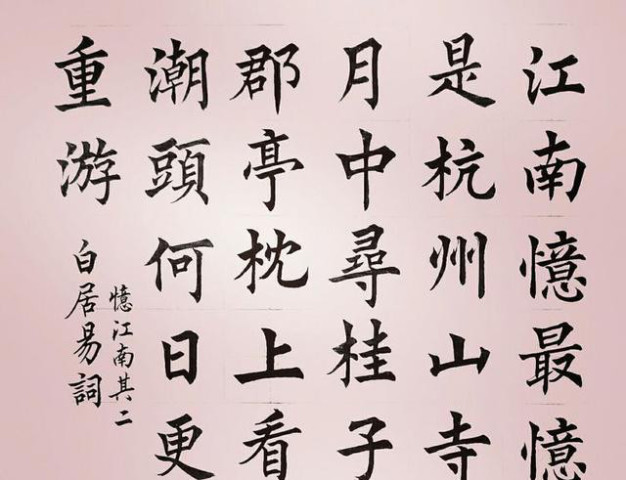 江南憶最憶
是杭州山寺
月中尋桂子
郡亭枕上看
潮頭何日更
重游
憶江南其二
白居易詞